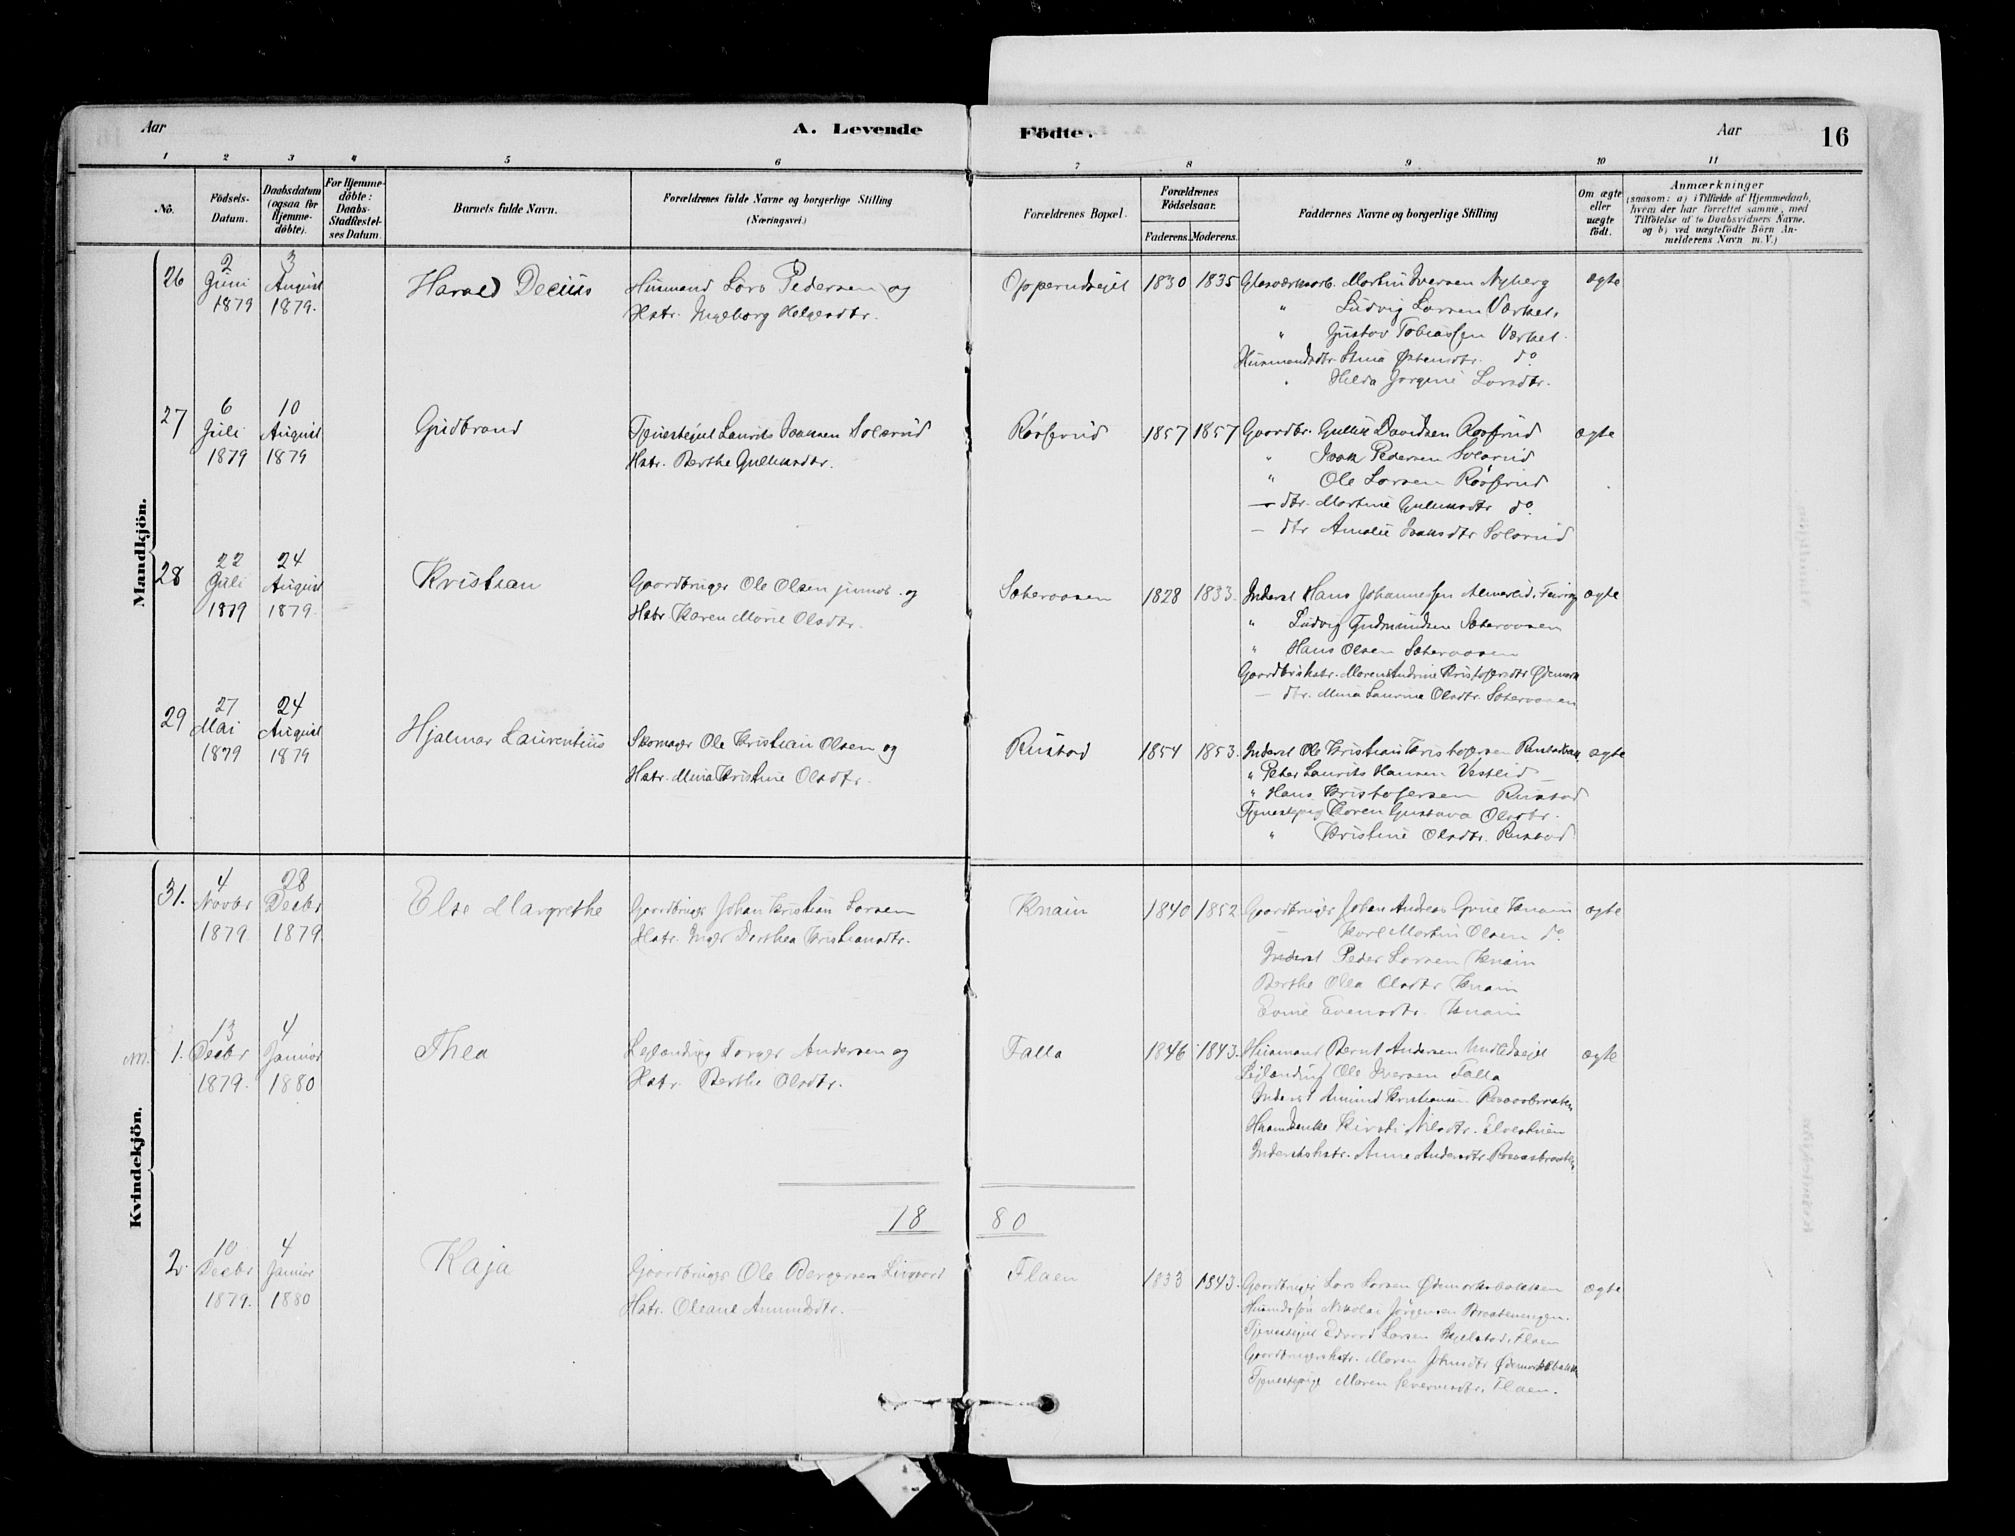 Aar
A. Levende
Födte.
Aar
16
1 2 3 4 5 6 7 8 9 10 11
No.
Födsels-
Datum.
Daabsdatum
(ogsaa for
Hjemme-
döbte).
For Hjemme-
döbte:
Daabs-
Stadfæstel-
ses Datum.
Barnets fulde Navn.
Forældrenes fulde Navne og borgerlige Stilling
(Næringsvei.)
Forældrenes Bopæl.
Forældrenes
Födselsaar.
Faderens.
Moderens.
Faddernes Navne og borgerlige Stilling
Om ægte
eller
uægte
födt.
Anmærkninger
(saasom: a) i Tilfælde af Hjemmedaab,
hvem der har forrettet samme, med
Tilföielse af to Daabsvidners Navne.
og b) ved uægtefödte Börn An-
melderens Navn m. V.)
Mandkjön.
26
2
Juni
1879
3
August
1879.
Harald Decius
Husmand Lars Pedersen og
Hstr. Ingeborg Helgesdtr.
Opperudeiet
1830
1835
Glasværksarb. Martin Iversen Nyberg
" Ludvig Larsen Værket.
" Gustav Tobiassen Værket.
Husmandsdtr. Stina Østensdtr. do
Hilda Jørgine Larsdtr.
ægte
27
6
Juli
1879
10
August
1879
Gudbrand
Tjenestekarl Laurits Isaksen Solerud
Hstr. Berthe Gulliksdtr.
Røisrud
1857
1857
Gaardbr. Gullik Davidsen
" Isak Pedersen Solerud
" Ole Larsen
— dtr. Martine Gulliksdtr do.
— dtr Amalie Isaksdtr Solerud
ægte
28
22
Juli
1879
24
August
1879.
Kristian
Gaardbruger Ole Olsen og
Hstr. Karen Marie Olsdtr.
Sæteraasen
1828
1833.
Inderst Hans Johannessen
" Ludvig Gudmundsen Sæteraasen
" Hans Olsen Sæteraasen
Gaardbrhstr. Maren Andrine Kristofersdtr Ødemark
— dtr. Mina Laurine Olsdtr. Sæteraasen
ægte
29
27
Mai
1879
24
August
1879
Hjalmar Laurentius
Skomager Ole Kristian Olsen og
Hstr. Mina Kristine Olsdtr.
Rustad
1854
1853.
Inderst Ole Kristian Kristofersen
" Peter Laurits Hansen Vestlid
" Hans Kristofersen Rustad
Tjenestepige Karen Gustava Olsdtr.
" Kristine Olsdtr. Rustad
ægte
Kvindekjön.
31.
4
Novbr
1879
28
Decbr
1879.
Else Margrethe
Gaardbruger Johan Kristian Larsen
Hstr. Inger Dorthea Kristiansdtr.
Knain
1840
1852
Gaardbruger Johan Andreas Knain
Karl Martin Olsen do
Inderst Peder Larsen Knain
Berthe Olea Olsdtr Knain
Evensdtr. Knain
ægte
1.
13
Decbr
1879.
4
Januar
1880
Thea
Leilænding Torger Andersen og
Hstr. Berthe Olsdtr.
Falla
1846
1843.
Husmand Bernt Andersen
Leilænding Ole Iversen Falla
Inderst Amund Kristiansen
Kirsti Nilsdtr.
Inderstshstr. Anne Andersdtr
ægte
18
80
2.
10
Decbr
1879.
4
Januar
1880
Kaja
Gaardbruger Ole Bergersen
Hstr. Oleane Amundsdtr.
Flaen
1833
1843.
Gaardbruger Lars Larsen Ødemarksbakken
Husmdssøn Nikolai Jørgensen Braatenengen.
Tjenestekarl Edvard Larsen Flaen
Gaardbrugerhstr. Maren Ødemarksbakk
Tjenestepige Maren Flaen.
ægte